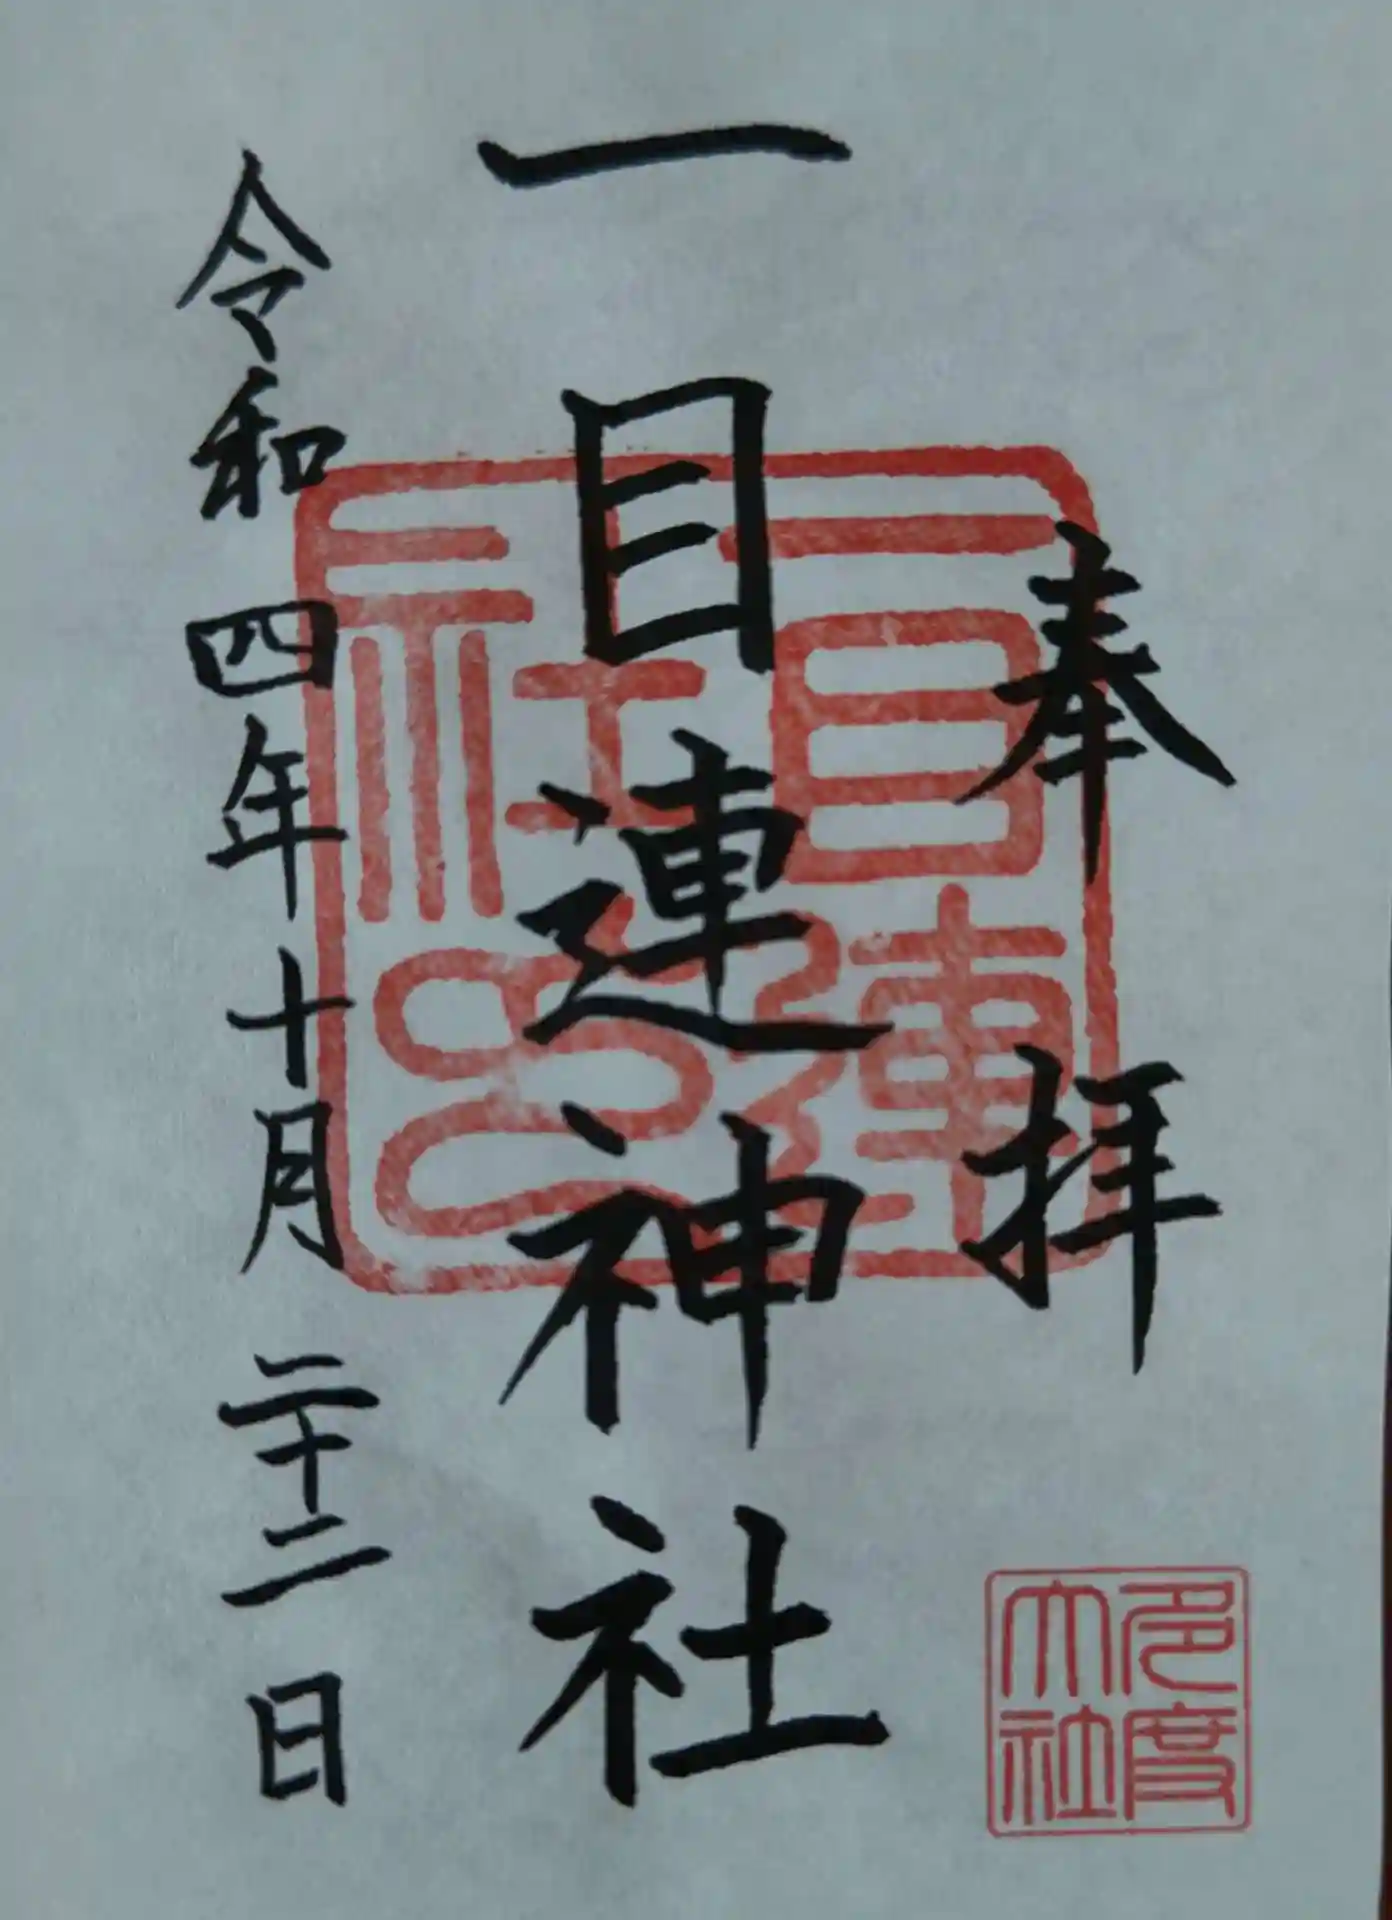 奉拝
一目連神社
令和四年十月二十二日
一目連社印
多度大社